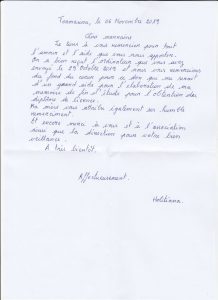 Toamasina, le 06 Novembre 2019
Cher marraine
Je tiens à vous remercier pour tout
le soutien et l'aide que vous nous apportez.
On a bien reçu l'ordinateur que vous avez
envoyé le 25 Octobre 2019 et nous vous remercions
du fond du coeur pour ce don qui me serait
d'un grand aide pour l'elaboration de ma
memoire de fin d'etude pour l'obtention du
diplôme de licence.
Ma mère vous adresse également ses humble
remerciement
Et encore merci à vous et à l'association
ainsi que la direction pour votre bien
veillance.
A très bientôt.
Affectueusement.